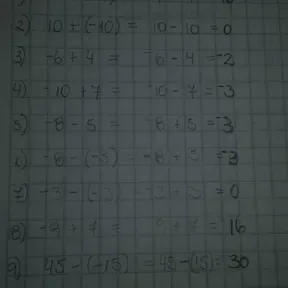 2) 10 + (-10) = 10 - 10 = 0
3) -6 + 4 = -6 - 4 = -2
4) -10 + 7 = 10 - 7 = -3
5) -8 - 5 = -8 + 5 = -3
6) -8 - (-5) = -8 + 5 = -3
7) -3 - (-3) -3 + 3 = 0
8) -9 + 7 = 9 + 7 = 16
9) 45 - (-15) = 45 - (15) = 30